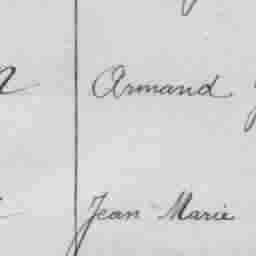 Armand
Jean Marie